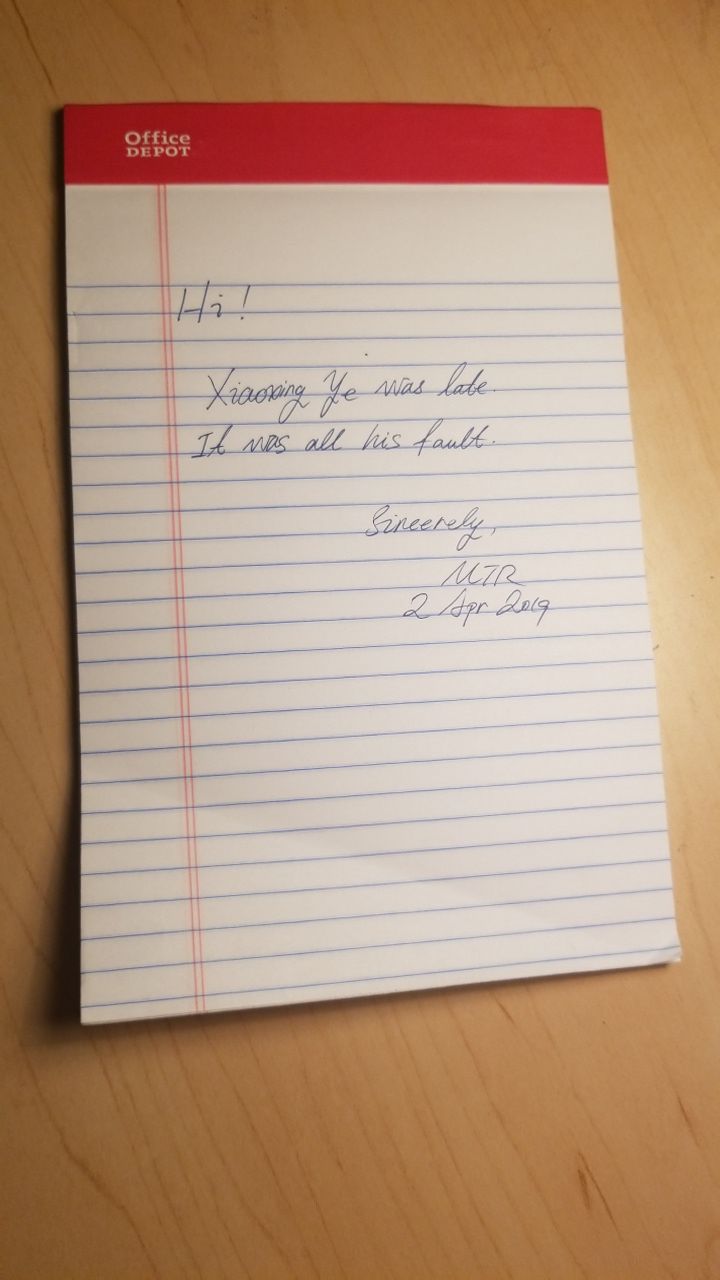 Office
DEPOT
Hi!
Xiaoxing Ye was late.
It was all his fault.
Sincerely,
MTR
2 Apr 2019